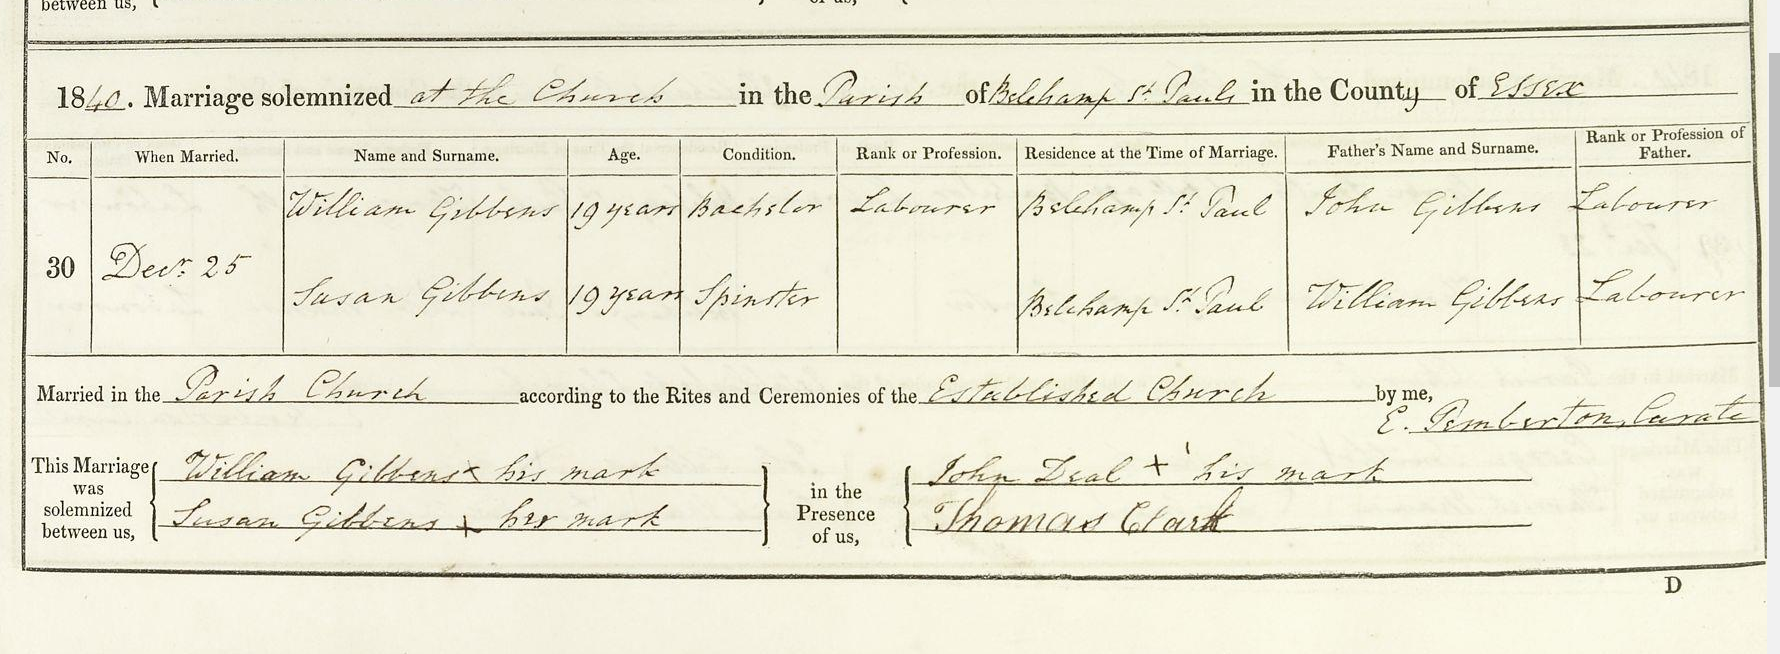 between us, of us,
1840. Marriage solemnized at the Church in the Parish of Belchamp St. Pauls in the County of Essex
No. When Married. Name and Surname. Age. Condition. Rank or Profession. Residence at the Time of Marriage. Father's Name and Surname. Rank or Profession of Father.
William Gibbens 19 years Bachelor Labourer Belchamp St. Paul John Gibbens Labourer
30 Decr. 25
Susan Gibbens 19 years Spinster Belchamp St. Paul William Gibbens Labourer
Married in the Parish Church according to the Rites and Ceremonies of the Established Church by me,
E. Pemberton, Curate
This Marriage was solemnized between us,
William Gibbens x his mark
Susan Gibbens x her mark
in the Presence of us,
John Deal + his mark
Thomas Clark
D